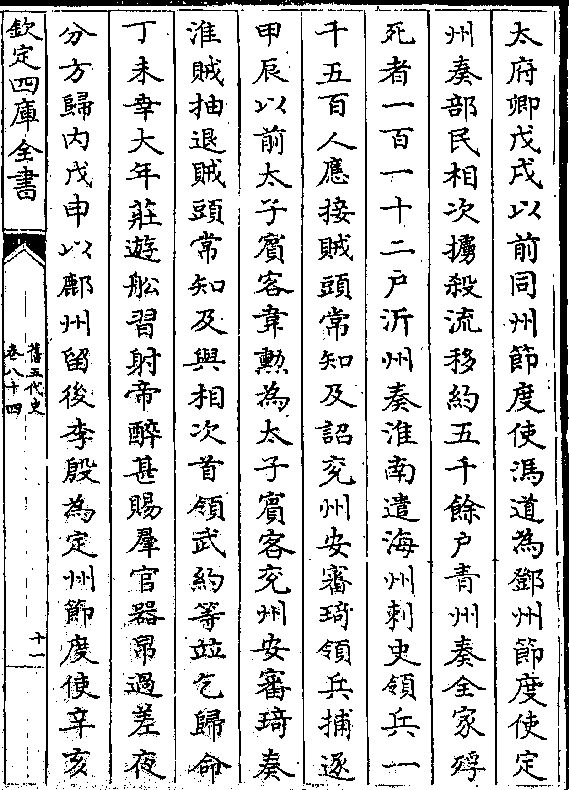 太府卿戊戌以前同州節度使馮道為鄧州節度使定
州奏部民相次擄殺流移約五千餘户青州奏全家殍
死者一百一十二户沂州奏淮南遣海州刺史領兵一
千五百人應接賊頭常知及詔兖州安審琦領兵捕逐
甲辰以前太子賓客韋勲為太子賓客兖州安審琦奏
淮賊抽退賊頭常知及與相次首領武約等並乞歸命
丁未幸大年莊遊船習射帝醉甚賜羣官器帛過差夜
分方歸内戊申以鄜州留後李殷為定州節度使辛亥
欽定四庫全書
舊五代史
卷八十四
十一